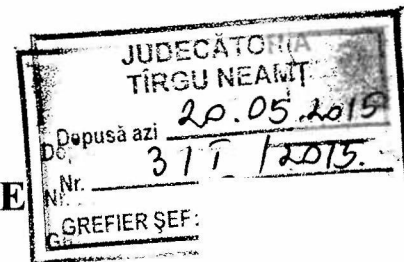 JUDECĂTORIA
TÎRGU NEAMŢ
Depusă azi 20.05.2015
Nr. 3 / I / 2015.
E
GREFIER ŞEF: